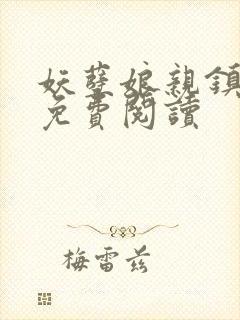 妖孽娘親鎮
免費閱讀
梅雷兹